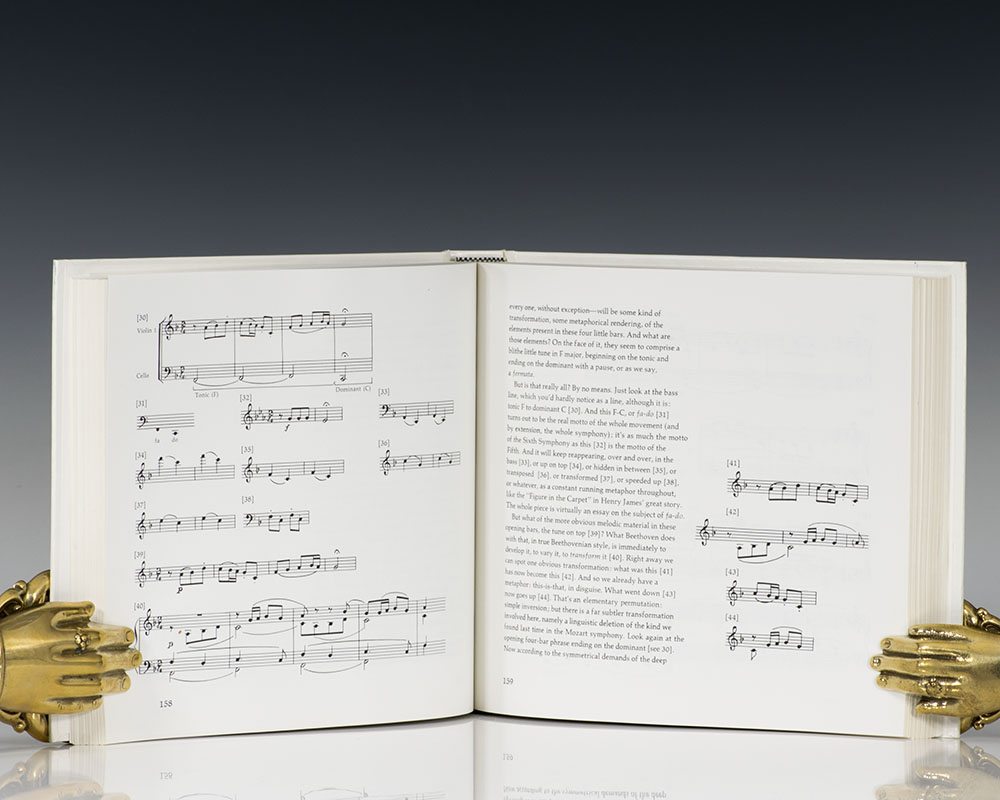 [30]
Violin 1
Cello
Tonic (F)
Dominant (C)
[31]
[32]
[33]
fa do
f
[34]
[35]
[36]
[37]
[38]
[39]
p
[40]
p
158
every one, without exception—will be some kind of
transformation, some metaphorical rendering, of the
elements present in these four little bars. And what are
those elements? On the face of it, they seem to comprise a
blithe little tune in F major, beginning on the tonic and
ending on the dominant with a pause, or as we say,
a fermata.
But is that really all? By no means. Just look at the bass
line, which you'd hardly notice as a line, although it is:
tonic F to dominant C [30]. And this F-C, or fa-do [31]
turns out to be the real motto of the whole movement (and
by extension, the whole symphony); it's as much the motto
of the Sixth Symphony as this [32] is the motto of the
Fifth. And it will keep reappearing, over and over, in the
bass [33], or up on top [34], or hidden in between [35], or
transposed [36], or transformed [37], or speeded up [38],
or whatever, as a constant running metaphor throughout,
like the "Figure in the Carpet" in Henry James' great story.
The whole piece is virtually an essay on the subject of fa-do.
But what of the more obvious melodic material in these
opening bars, the tune on top [39]? What Beethoven does
with that, in true Beethovenian style, is immediately to
develop it, to vary it, to transform it [40]. Right away we
can spot one obvious transformation: what was this [41]
has now become this [42]. And so we already have a
metaphor: this-is-that, in disguise. What went down [43]
now goes up [44]. That's an elementary permutation:
simple inversion; but there is a far subtler transformation
involved here, namely a linguistic deletion of the kind we
found last time in the Mozart symphony. Look again at the
opening four-bar phrase ending on the dominant [see 30].
Now according to the symmetrical demands of the deep
[41]
[42]
[43]
[44]
159